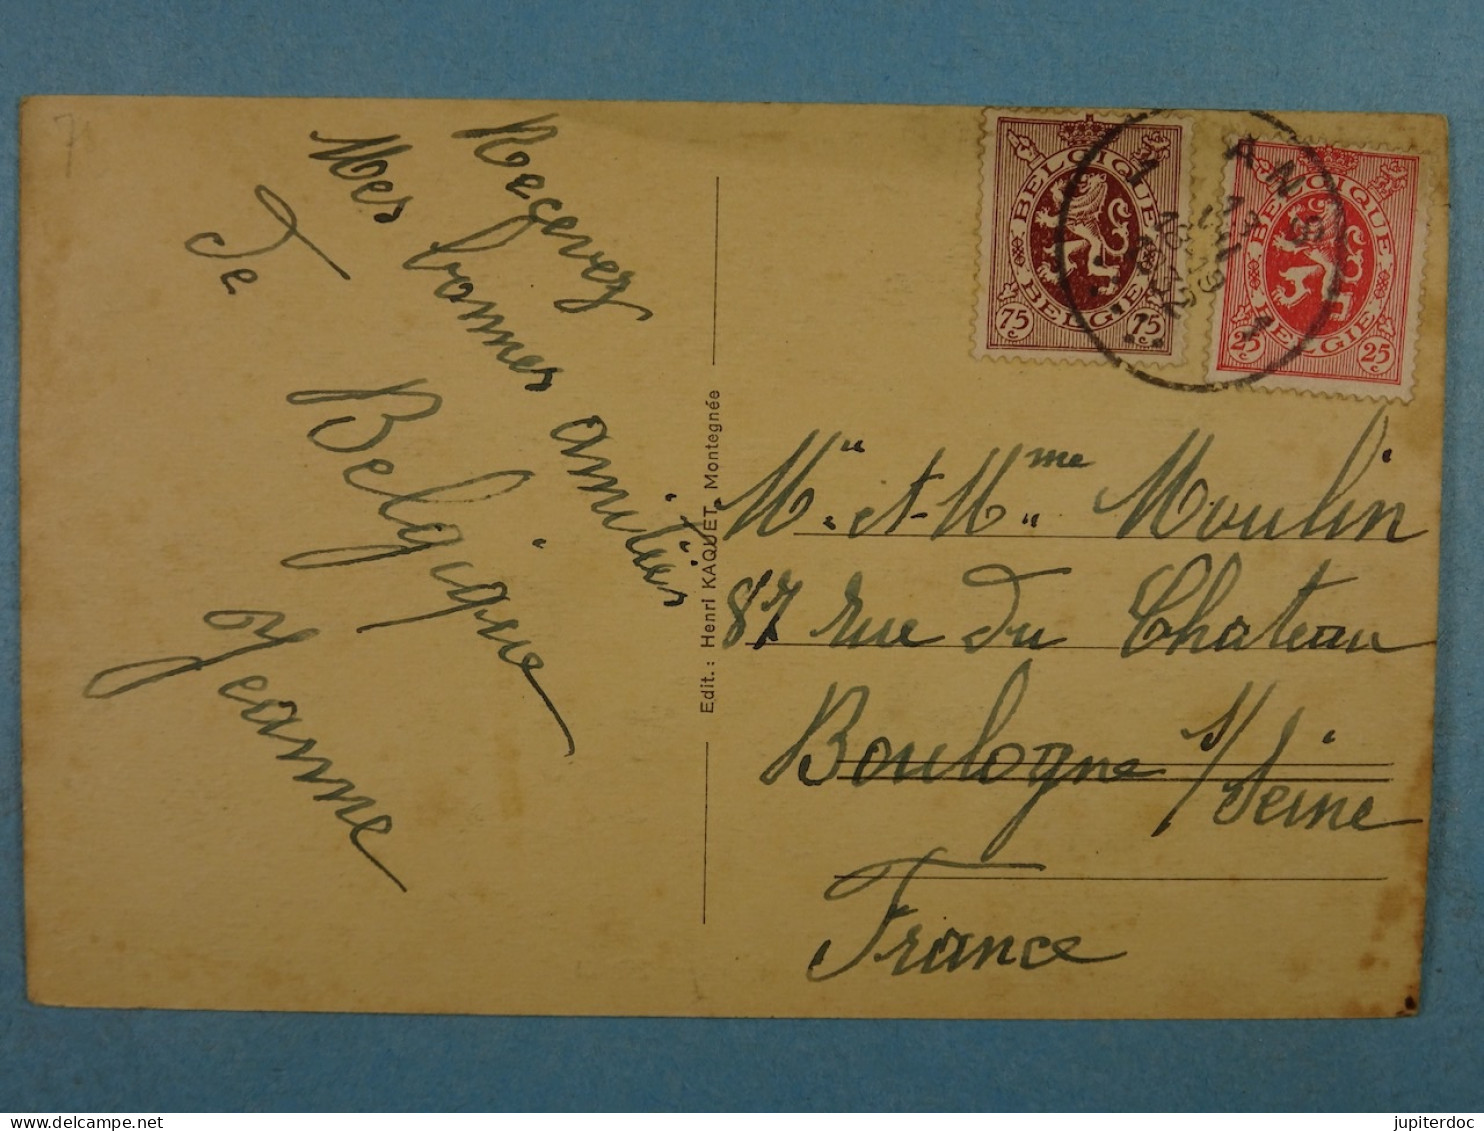 7
Recevez
Mes bonnes amitiés
De
Belgique
Jeanne
Edit.: Henri KAQUET, Montegnée
BELGIQUE
BELGIË
75c 75c
BELGIQUE
BELGIË
25c 25c
ANS
1 1
Mr et Mme Moulin
87 rue du Chateau
Boulogne s/Seine
France
jupiterdoc